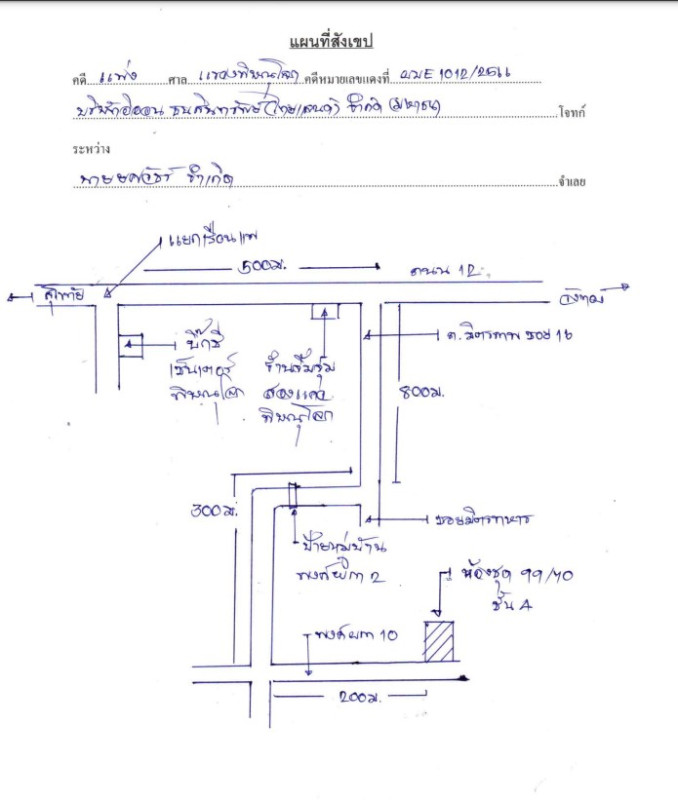 แผนที่สังเขป
คดี แพ่ง ศาล แขวงพิษณุโลก คดีหมายเลขแดงที่ ผบE 1012/2566
บริษัทอิออน ธนสินทรัพย์ (ไทยแลนด์) จำกัด (มหาชน) โจทก์
ระหว่าง
นาย จำเลย
แยกเรือนแพ
500 ม.
ถนน 12
สุโขทัย
วังทอง
บิ๊กซี
เซ็นเตอร์
พิษณุโลก
ร้านส้มชุม
สองแคว
พิษณุโลก
ถ.มิตรภาพ ซอย 16
800 ม.
300 ม.
ซอยมิตรทหาร
ป้ายหมู่บ้าน
2
ห้องชุด 99/70
ชั้น 4
10
200 ม.